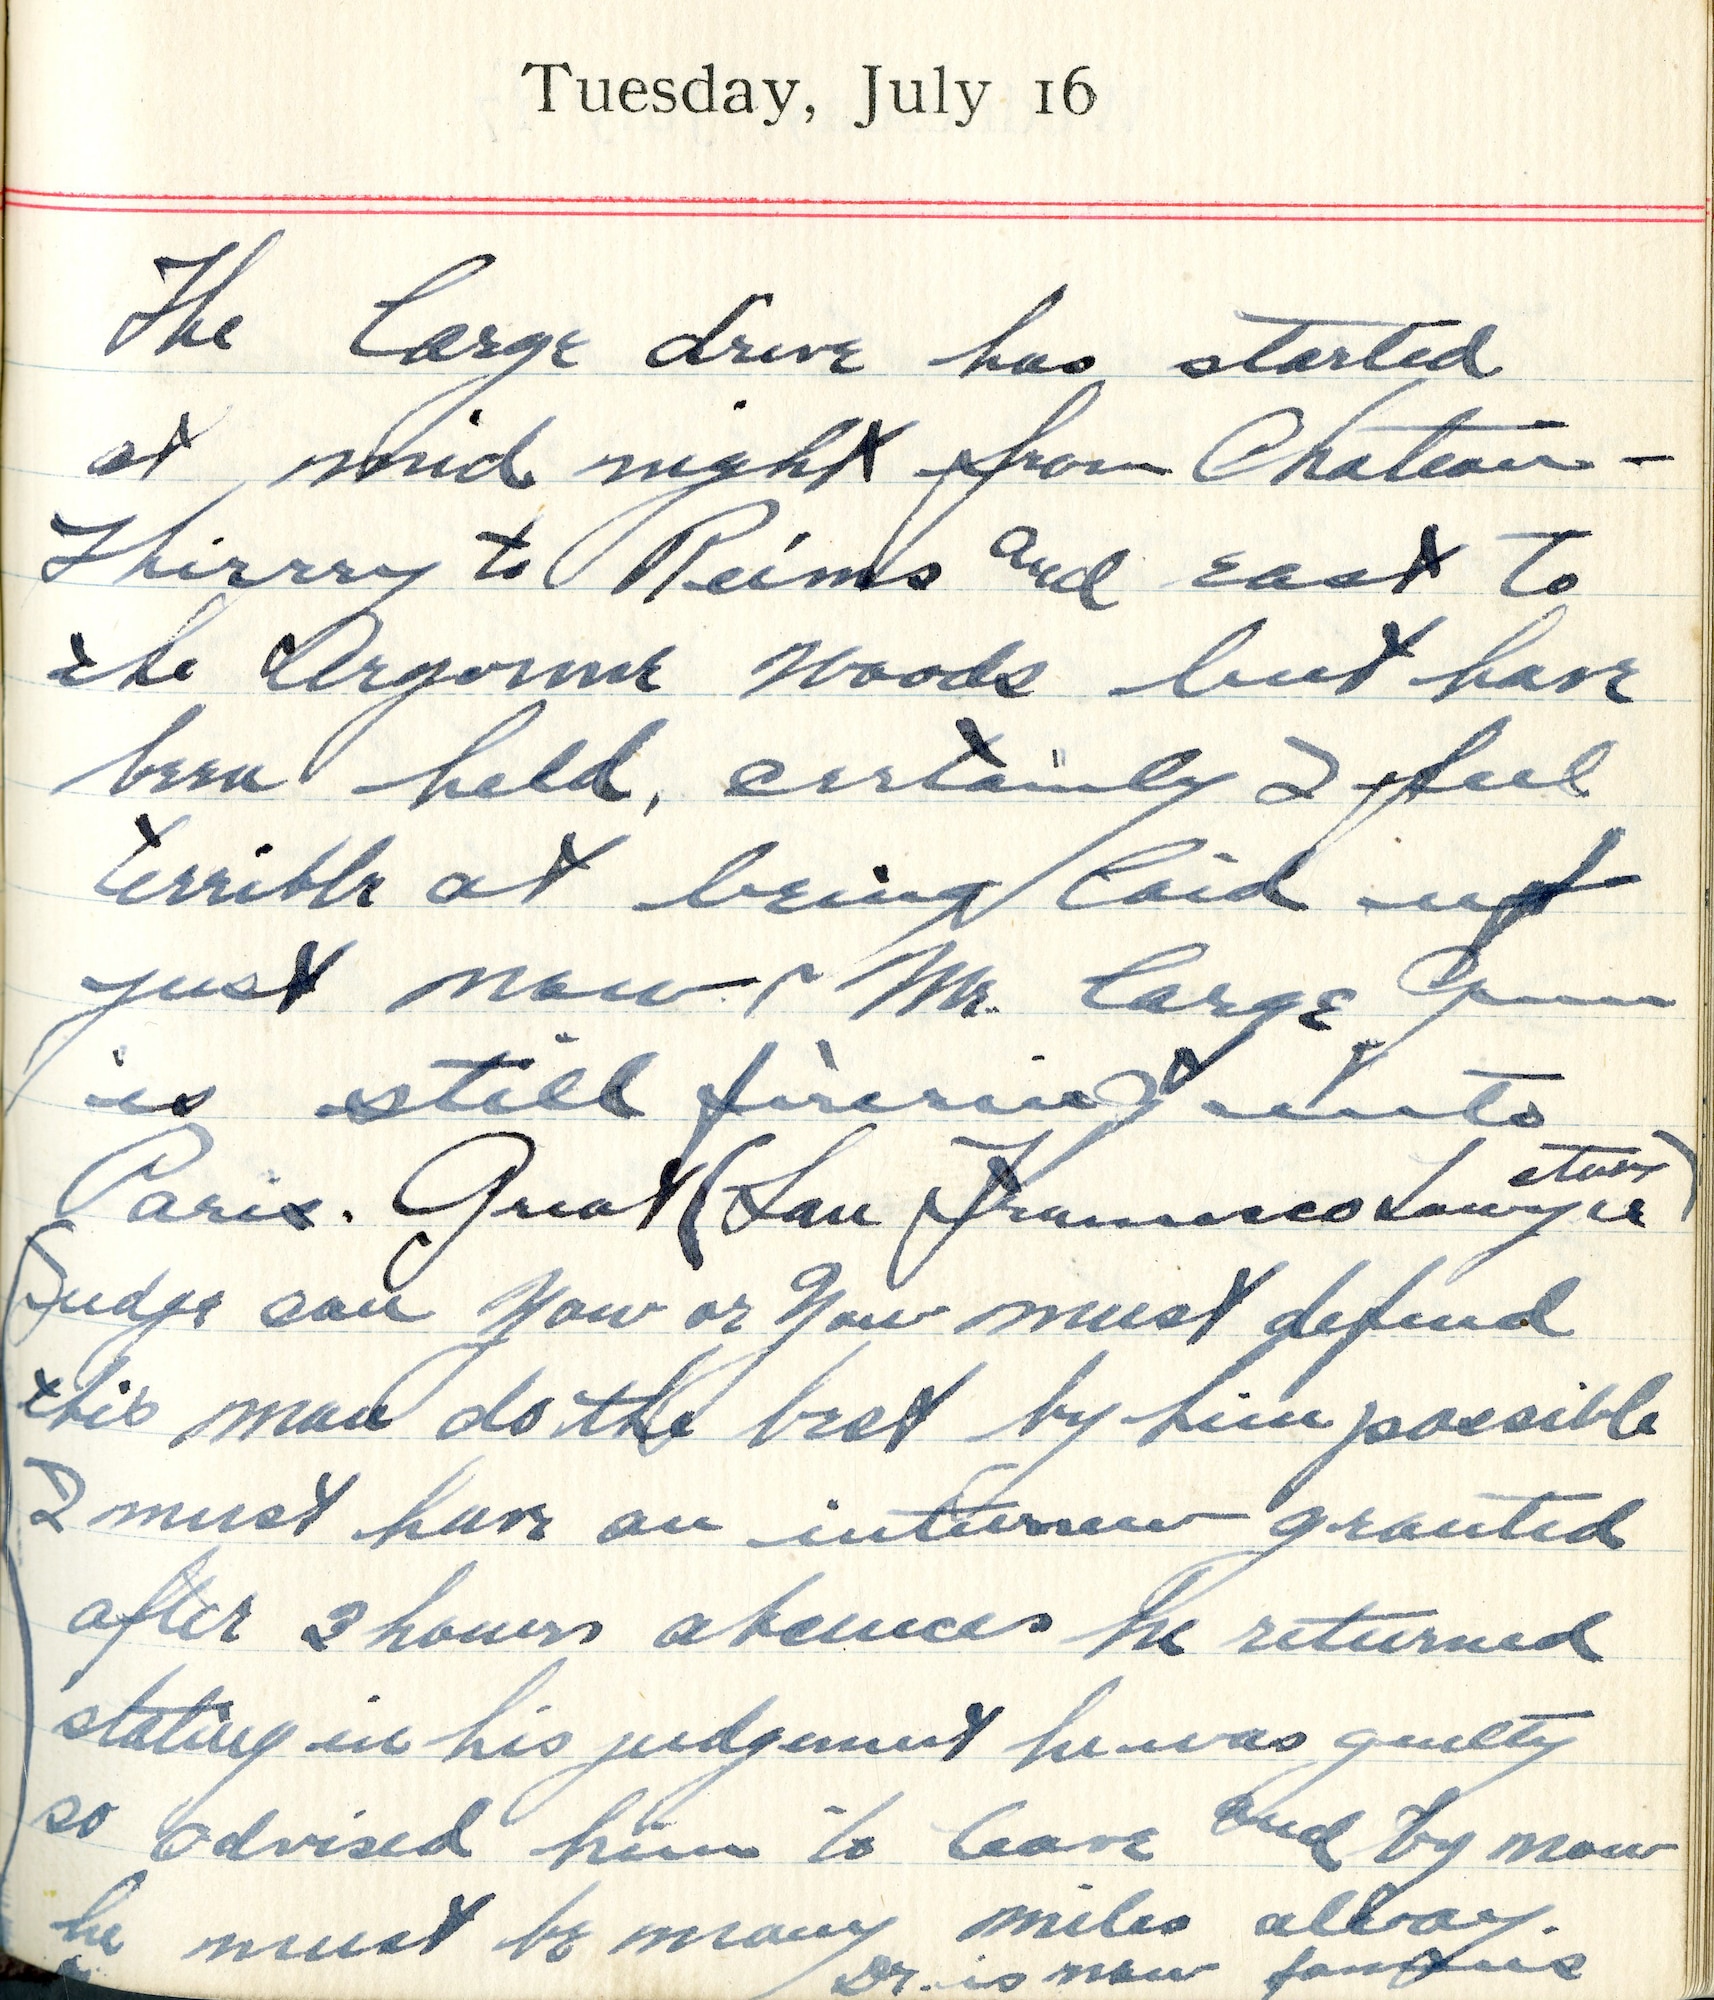 Tuesday, July 16
The large drive has started
at mid night from Chateau-
Thirrry to Reims and east to
the Argonne Woods but have
been held, certainly I feel
terrible at being laid up
just now. Mr. Large Gun
is still firering into
Paris. Great (San Francisco Lawyer story)
Judge said You or You must defend
this man do the best by him possible
I must have an interview granted
after 2 hours absences he returned
stating in his judgement he was guilty
so advised him to leave and by now
he must be many miles alway.
Dr. is now famous